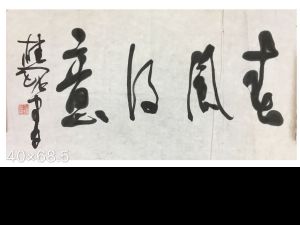 春风得意
40×68.5